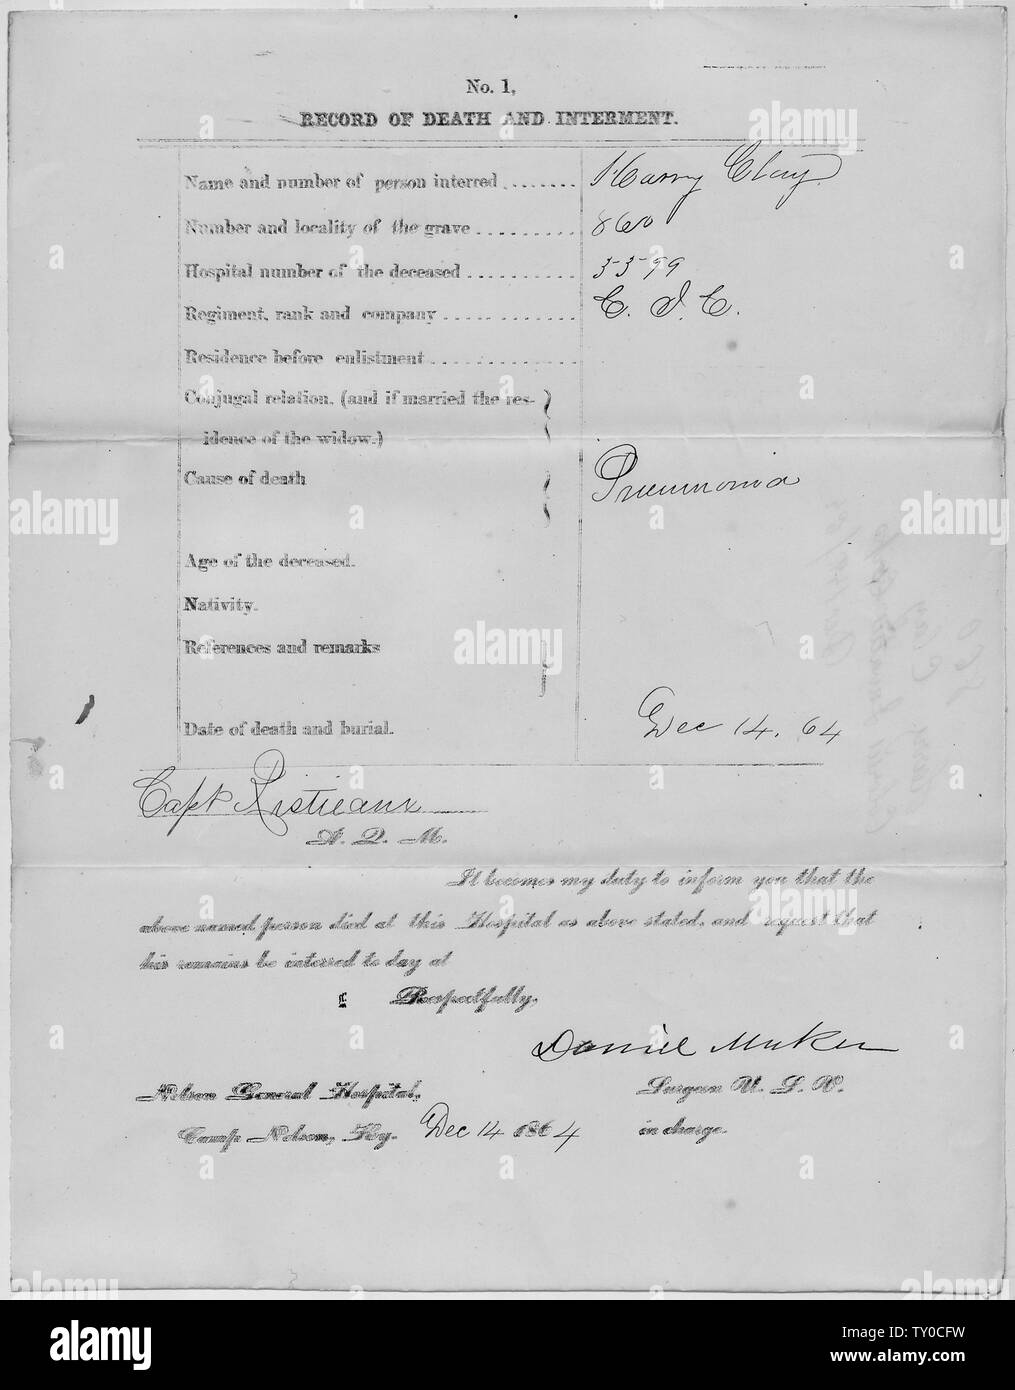 No. 1,
RECORD OF DEATH AND INTERMENT.
Name and number of person interred ....... Harry Clay.
Number and locality of the grave ......... 860
Hospital number of the deceased .......... 5599
Regiment, rank and company ............ C. S. C.
Residence before enlistment .............
Conjugal relation, (and if married the res-
idence of the widow.)
Cause of death Pneumonia
Age of the deceased.
Nativity.
References and remarks
Date of death and burial. Dec 14. 64
Capt Restieaux
A. Q. M.
It becomes my duty to inform you that the
above named person died at this Hospital as above stated, and request that
his remains be interred to day at
Respectfully,
Daniel
Nelson General Hospital, Surgeon U. S. V.
Camp Nelson, Ky. Dec 14 1864 in charge.
alamy
alamy
alamy
Image ID: TY0CFW
www.alamy.com